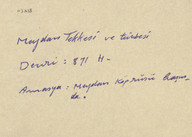 Meydan Tekkesi ve türbesi
Devri : 871 H-
Amasya : Meydan Köprüsü Başın
da.